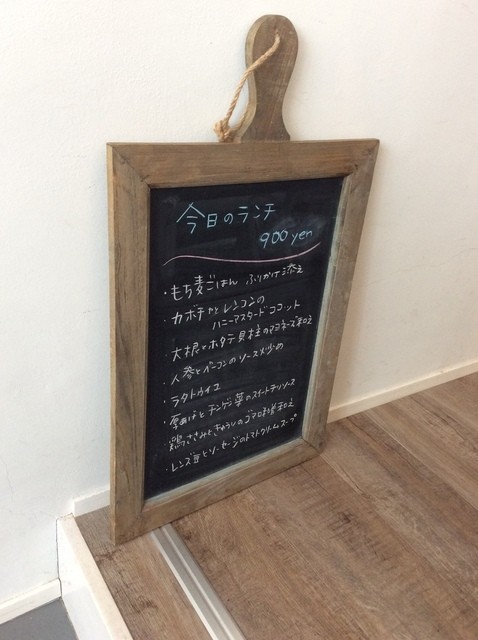 今日のランチ
900 yen
・もち麦ごはん ふりかけ添え
・カボチャとレンコンの
ハニーマスタードココット
・大根とホタテ貝柱のマヨネーズ和え
・人参とベーコンのソース炒め
・ラタトゥイユ
・厚あげとチンゲン菜のスイートチリソース
・鶏ささみときゅうりのゴマ味噌和え
・レンズ豆とソーセージのトマトクリームスープ